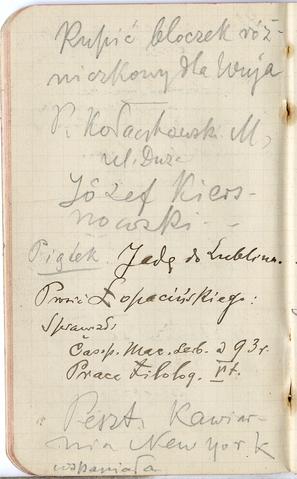 Kupić bloczek róż-
niczkowy dla Wuja
P. Kołaczkowski M,
ul. Duża
Józef Kiers-
nowski -
Piątek. Jadę do Lublina.
Prosić Łopacińskiego:
Sprawdź
Časop. Mac. Serb. z 93 r.
Prace Filolog. IV t.
Peszt. Kawiar-
nia New York
wspaniała